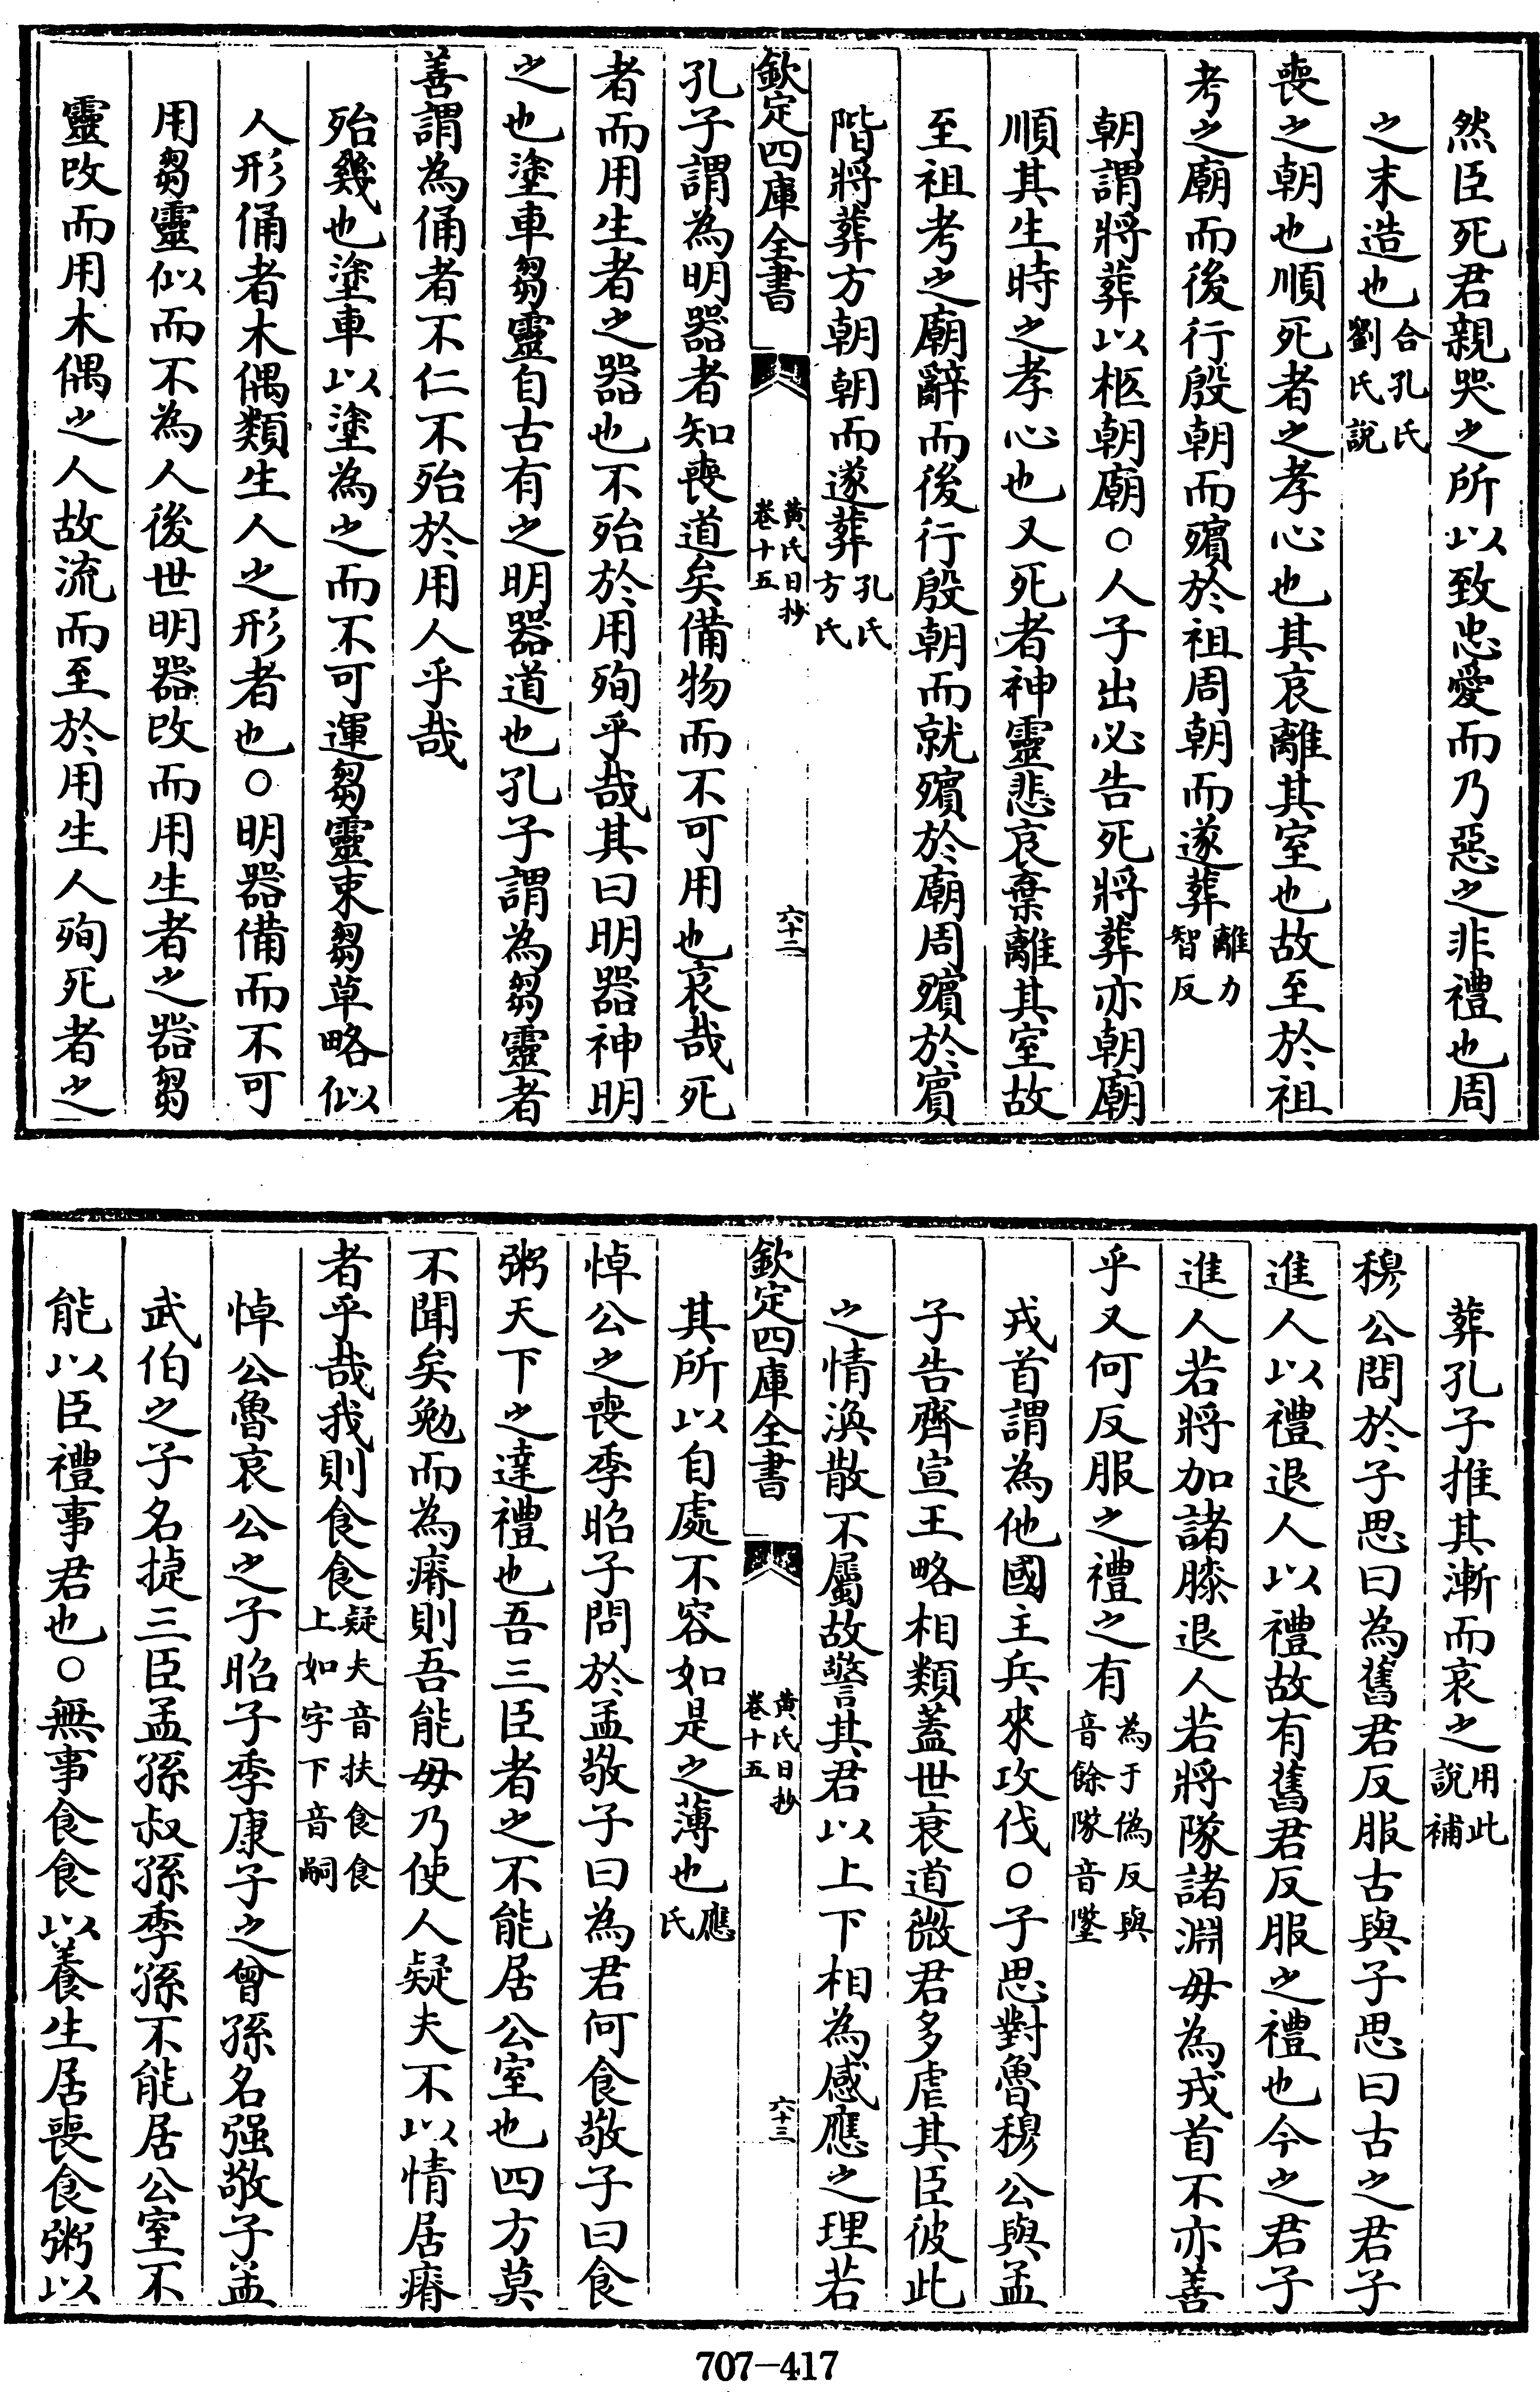 然臣死君親哭之所以致忠愛而乃惡之非禮也周
之末造也合孔氏劉氏說
喪之朝也順死者之孝心也其哀離其室也故至於祖
考之廟而後行殷朝而殯於祖周朝而遂葬離力智反
朝謂將葬以柩朝廟○人子出必告死將葬亦朝廟
順其生時之孝心也又死者神靈悲哀棄離其室故
至祖考之廟辭而後行殷朝而就殯於廟周殯於賓
階將葬方朝朝而遂葬孔氏方氏
欽定四庫全書
黃氏日抄
卷十五
六十二
孔子謂為明器者知喪道矣備物而不可用也哀哉死
者而用生者之器也不殆於用殉乎哉其曰明器神明
之也塗車芻靈自古有之明器道也孔子謂為芻靈者
善謂為俑者不仁不殆於用人乎哉
殆幾也塗車以塗為之而不可運芻靈束芻草略似
人形俑者木偶類生人之形者也○明器備而不可
用芻靈似而不為人後世明器改而用生者之器芻
靈改而用木偶之人故流而至於用生人殉死者之
葬孔子推其漸而哀之用此說補
穆公問於子思曰為舊君反服古與子思曰古之君子
進人以禮退人以禮故有舊君反服之禮也今之君子
進人若將加諸膝退人若將隊諸淵毋為戎首不亦善
乎又何反服之禮之有為于偽反與音餘隊音墜
戎首謂為他國主兵來攻伐○子思對魯穆公與孟
子告齊宣王略相類蓋世衰道微君多虐其臣彼此
之情渙散不屬故警其君以上下相為感應之理若
欽定四庫全書
黃氏日抄
卷十五
六十三
其所以自處不容如是之薄也應氏
悼公之喪季昭子問於孟敬子曰為君何食敬子曰食
粥天下之達禮也吾三臣者之不能居公室也四方莫
不聞矣勉而為瘠則吾能毋乃使人疑夫不以情居瘠
者乎哉我則食食疑夫音扶食食上如字下音嗣
悼公魯哀公之子昭子季康子之曾孫名强敬子孟
武伯之子名捷三臣孟孫叔孫季孫不能居公室不
能以臣禮事君也○無事食食以養生居喪食粥以
707-417